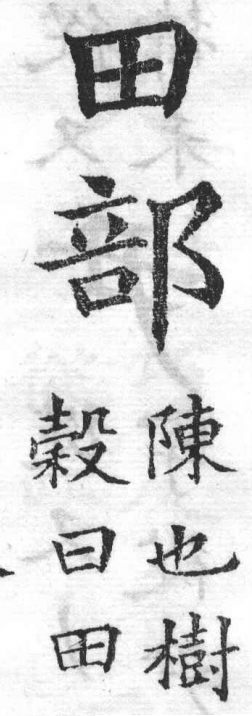 田部
陳也樹
穀曰田